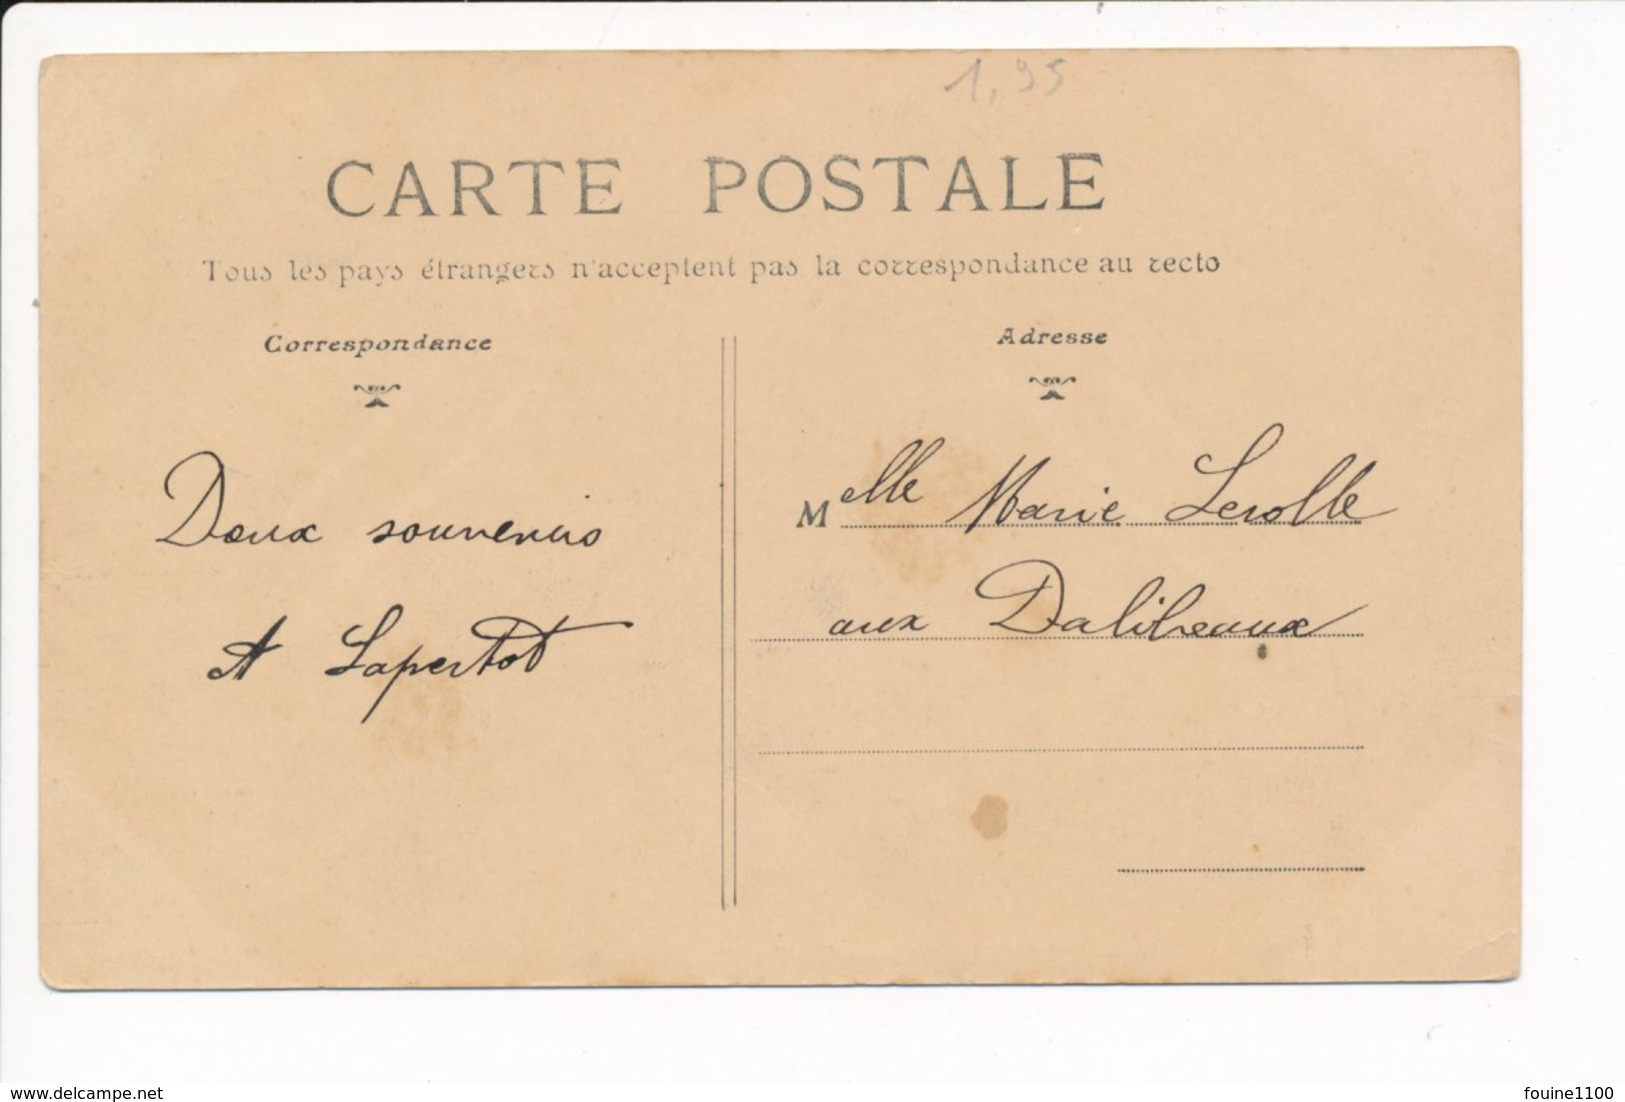 1,95
CARTE POSTALE
Tous les pays étrangers n'acceptent pas la correspondance au recto
Correspondance
Adresse
Doux souvenirs
A Lapertot
Melle Marie Lerolle
aux Dalibeaux
delcampe.net
fouine1100